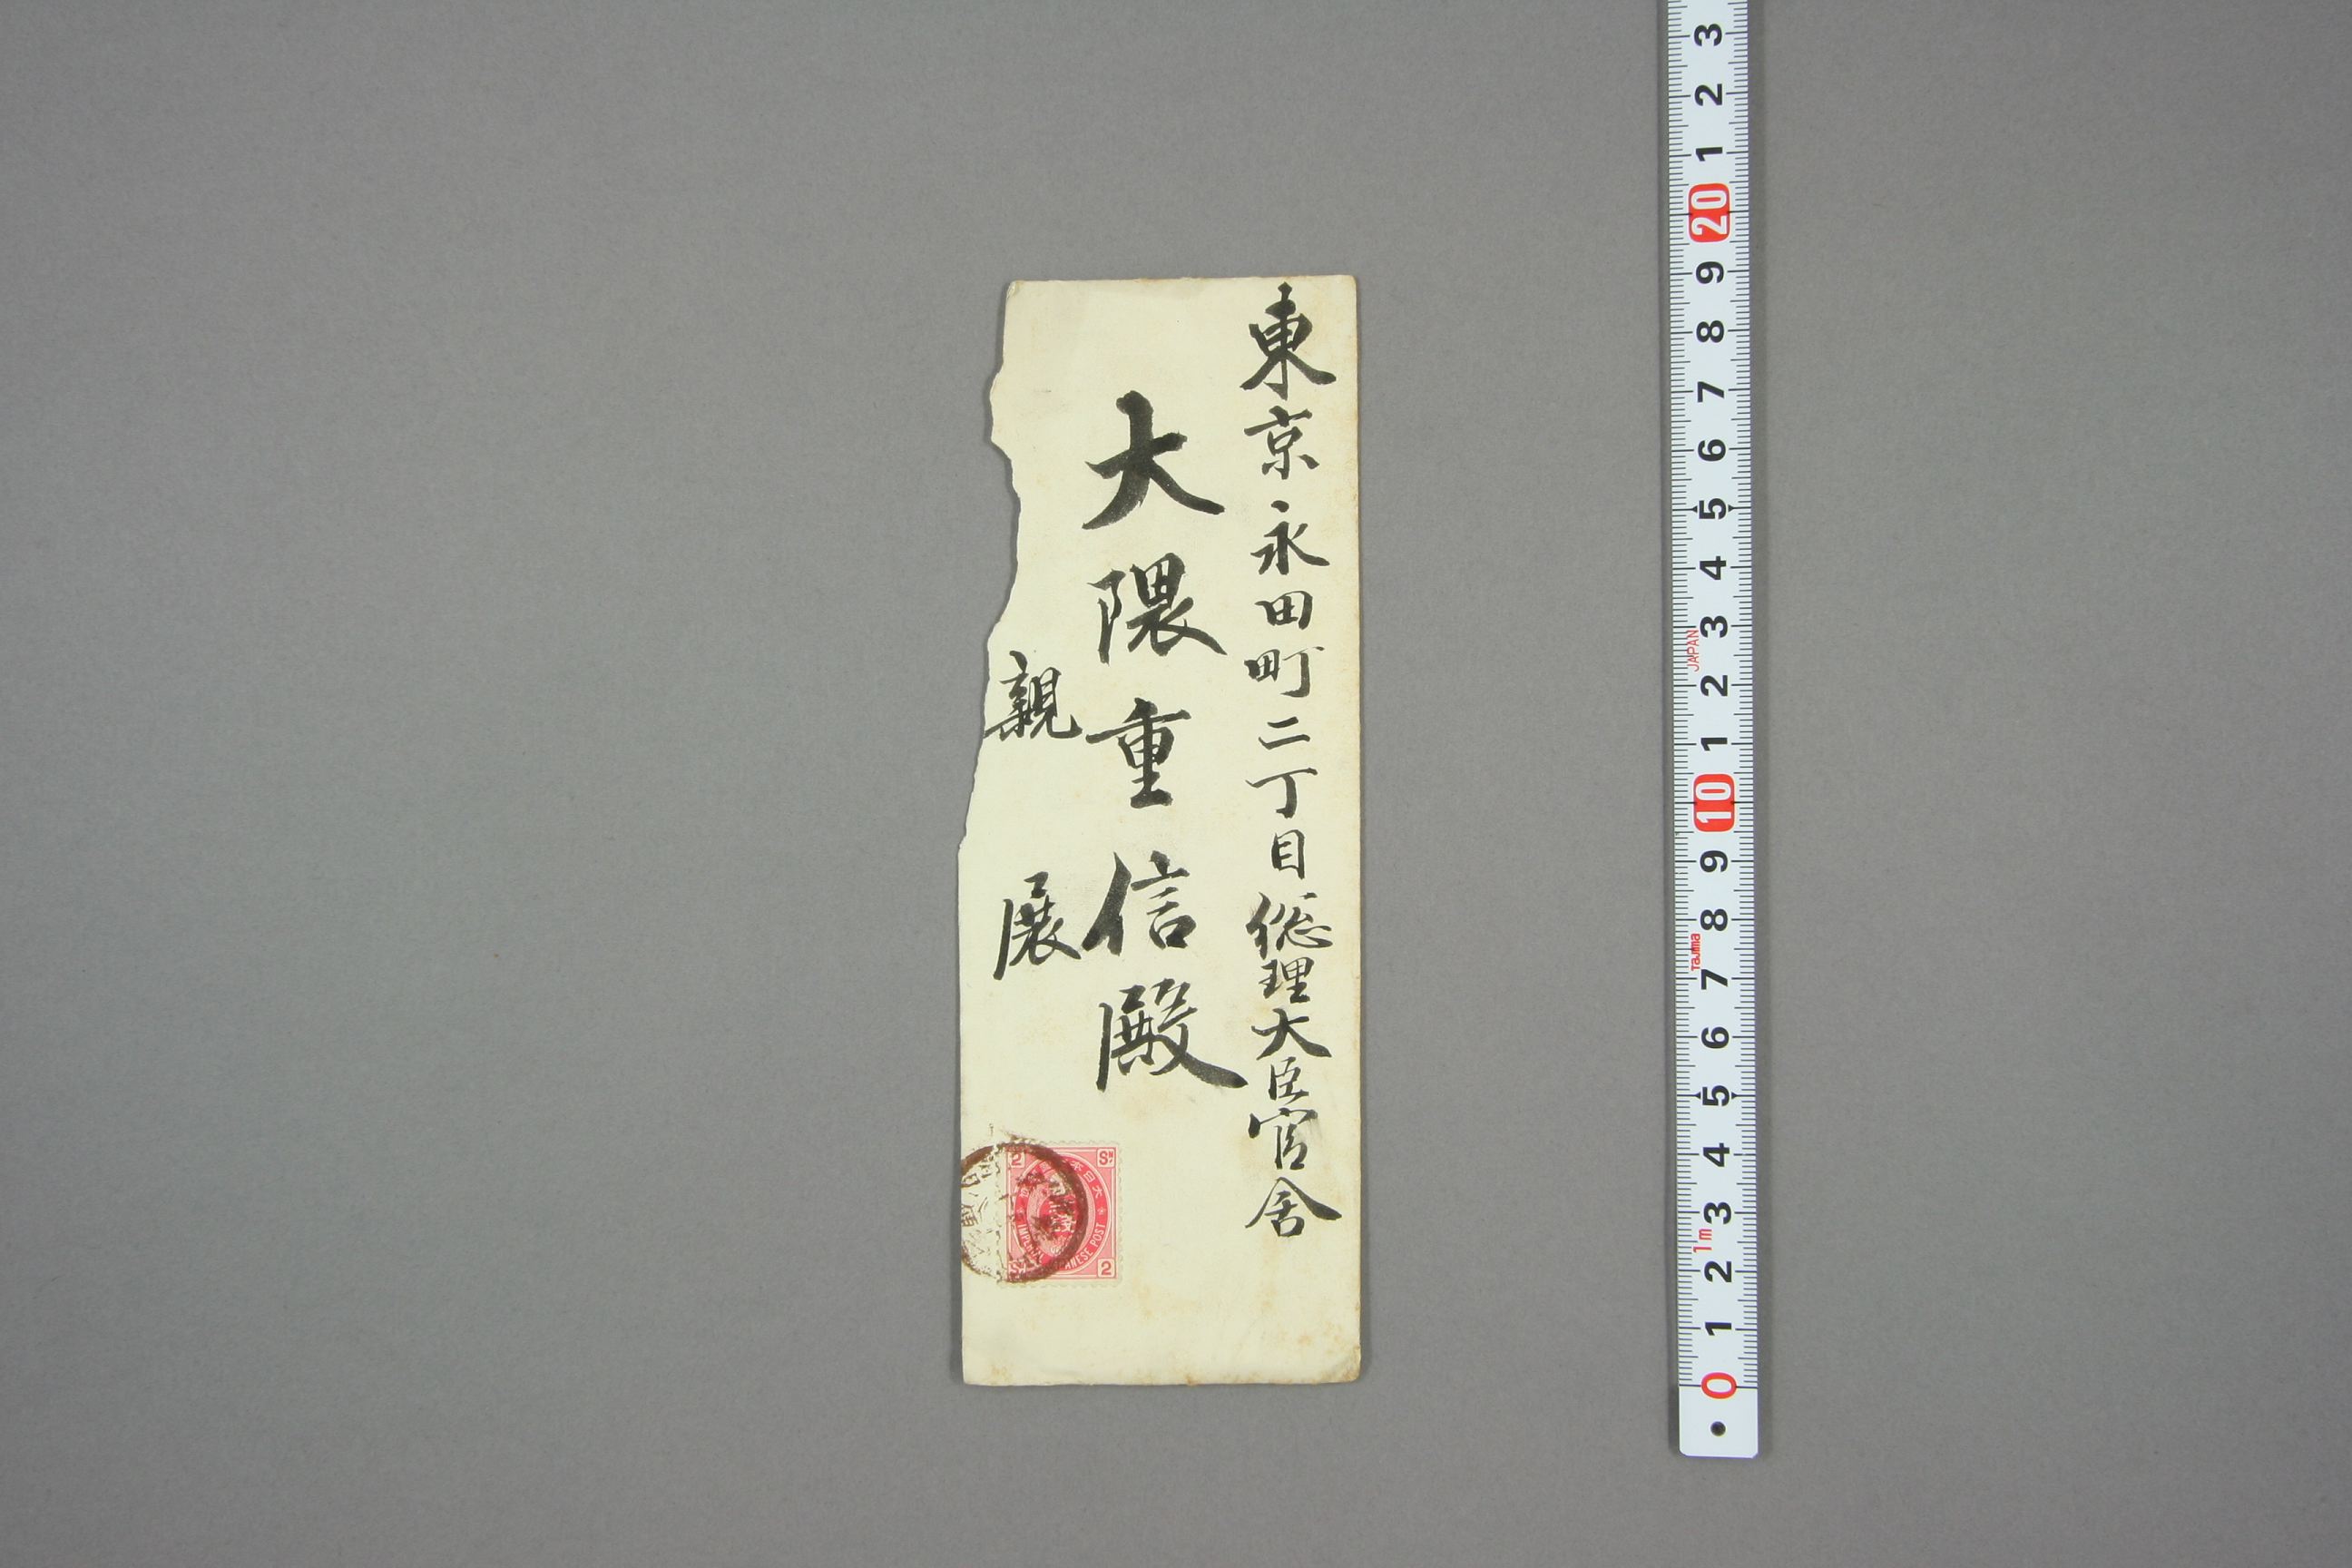 東京永田町二丁目総理大臣官舎
大隈重信殿
親展
2 Sn
大日本
IMPERIAL JAPANESE POST
Sn 2
3
2
1
20
9
8
7
6
5
4
3
JAPAN
2
1
10
9
8
Tajima
7
6
5
4
3
1m
2
1
0